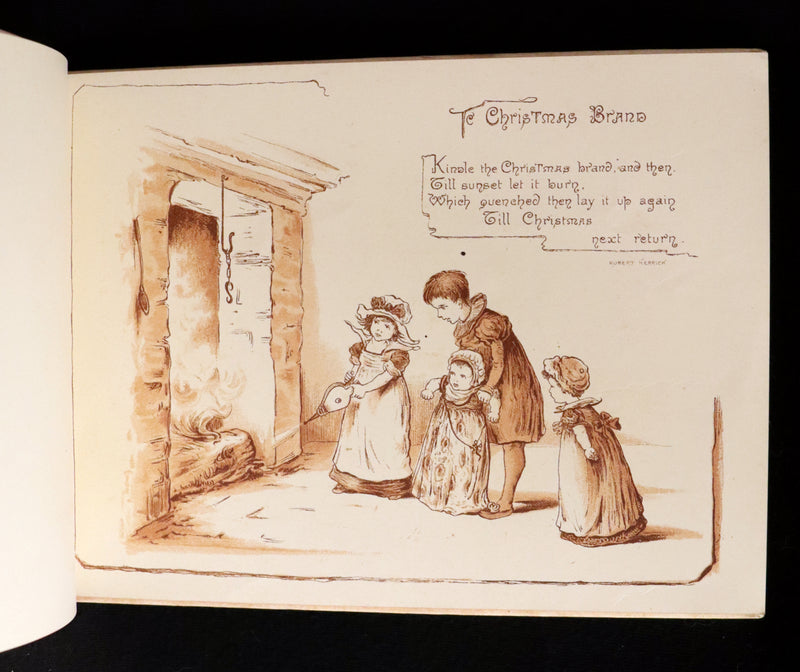 Ye Christmas Brand
Kindle the Christmas brand, and then.
Till sunset let it burn,
Which quenched then lay it up again
Till Christmas
next return.
ROBERT HERRICK